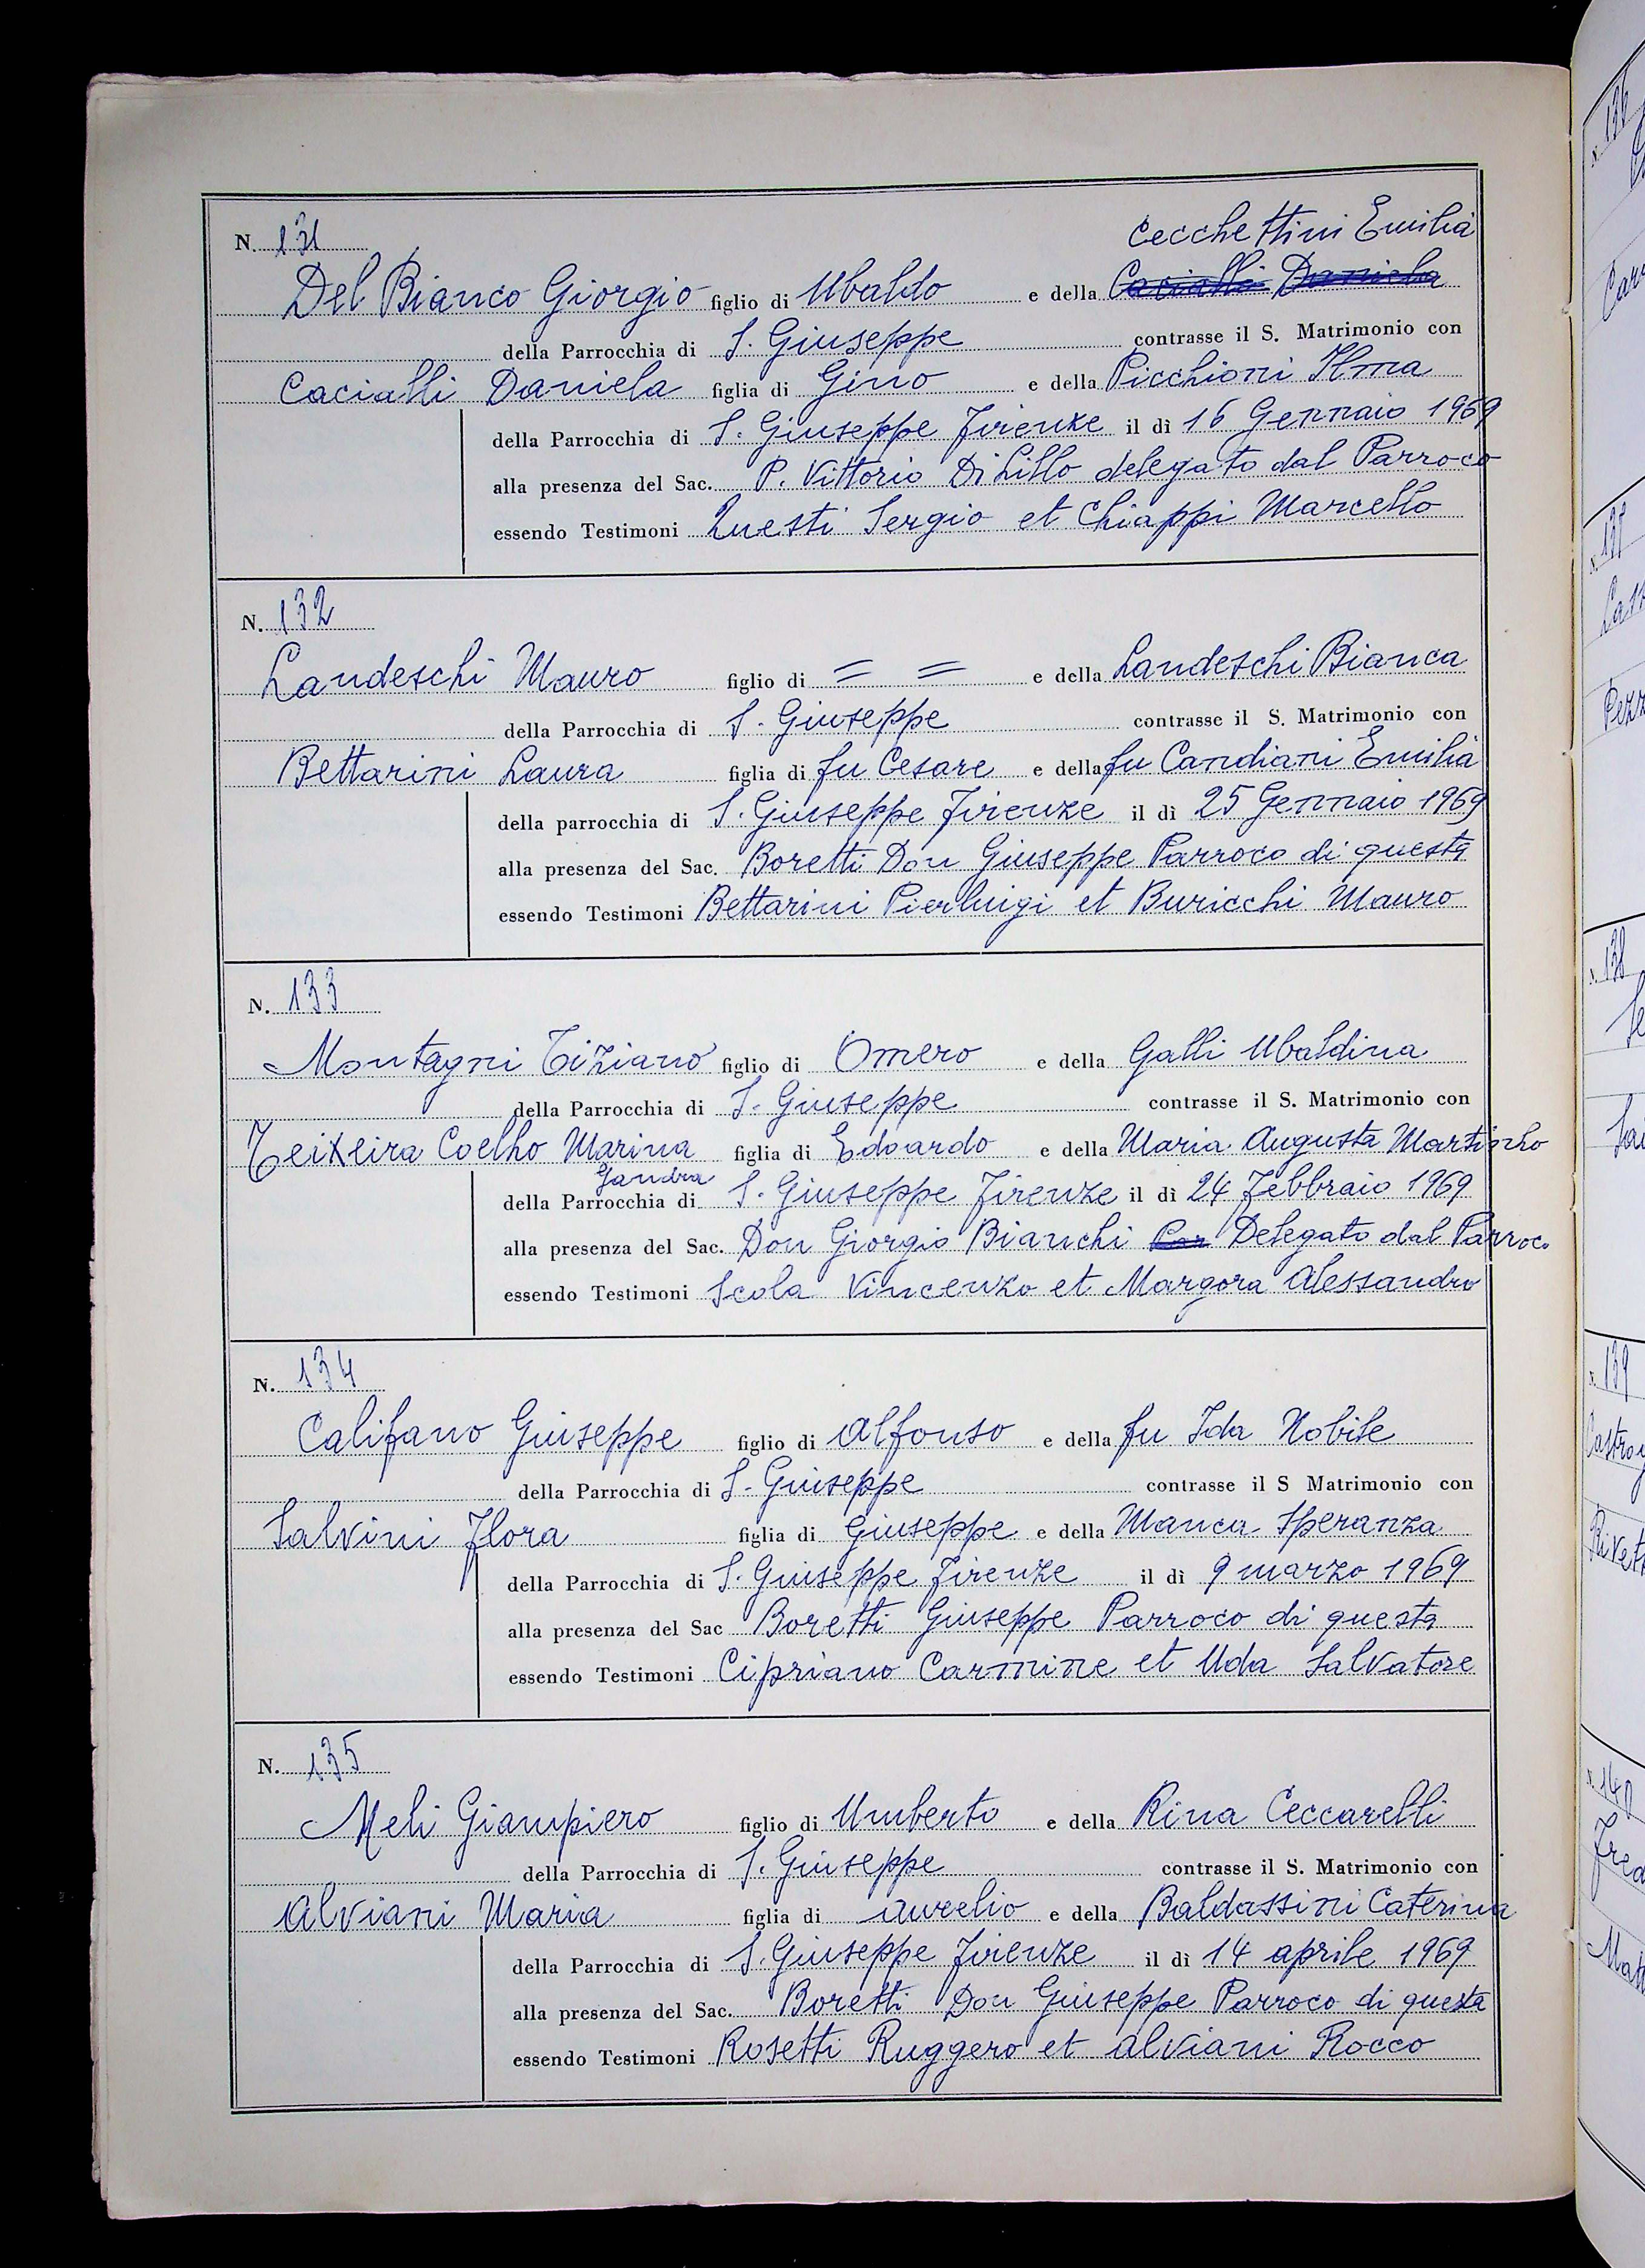 N. 131
Cecchettini Emilia
Del Bianco Giorgio figlio di Ubaldo e della Cacialli Daniela
della Parrocchia di S. Giuseppe contrasse il S. Matrimonio con
Cacialli Daniela figlia di Gino e della Picchioni Ilma
della Parrocchia di S. Giuseppe Firenze il dì 16 Gennaio 1969
alla presenza del Sac. P. Vittorio Di Lillo delegato dal Parroco
essendo Testimoni Questi Sergio et Chiappi Marcello
N. 132
Landeschi Mauro figlio di = = e della Landeschi Bianca
della Parrocchia di S. Giuseppe contrasse il S. Matrimonio con
Bettarini Laura figlia di fu Cesare e della fu Candiani Emilia
della parrocchia di S. Giuseppe Firenze il dì 25 Gennaio 1969
alla presenza del Sac. Boretti Don Giuseppe Parroco di questa
essendo Testimoni Bettarini Pierluigi et Buricchi Mauro
N. 133
Montagni Tiziano figlio di Omero e della Galli Ubaldina
della Parrocchia di S. Giuseppe contrasse il S. Matrimonio con
Teixeira Coelho Marina figlia di Edoardo e della Maria Augusta Martinho
Sandra
della Parrocchia di S. Giuseppe Firenze il dì 24 Febbraio 1969
alla presenza del Sac. Don Giorgio Bianchi Delegato dal Parroco
essendo Testimoni Scola Vincenzo et Margora Alessandro
N. 134
Califano Giuseppe figlio di Alfonso e della fu Ida Nobile
della Parrocchia di S. Giuseppe contrasse il S Matrimonio con
Salvini Flora figlia di Giuseppe e della Manca Speranza
della Parrocchia di S. Giuseppe Firenze il dì 9 marzo 1969
alla presenza del Sac Boretti Giuseppe Parroco di questa
essendo Testimoni Cipriano Carmine et Uda Salvatore
N. 135
Meli Giampiero figlio di Umberto e della Rina Ceccarelli
della Parrocchia di S. Giuseppe contrasse il S. Matrimonio con
Alviani Maria figlia di Aurelio e della Baldassini Caterina
della Parrocchia di S. Giuseppe Firenze il dì 14 aprile 1969
alla presenza del Sac. Boretti Don Giuseppe Parroco di questa
essendo Testimoni Rosetti Ruggero et Alviani Rocco